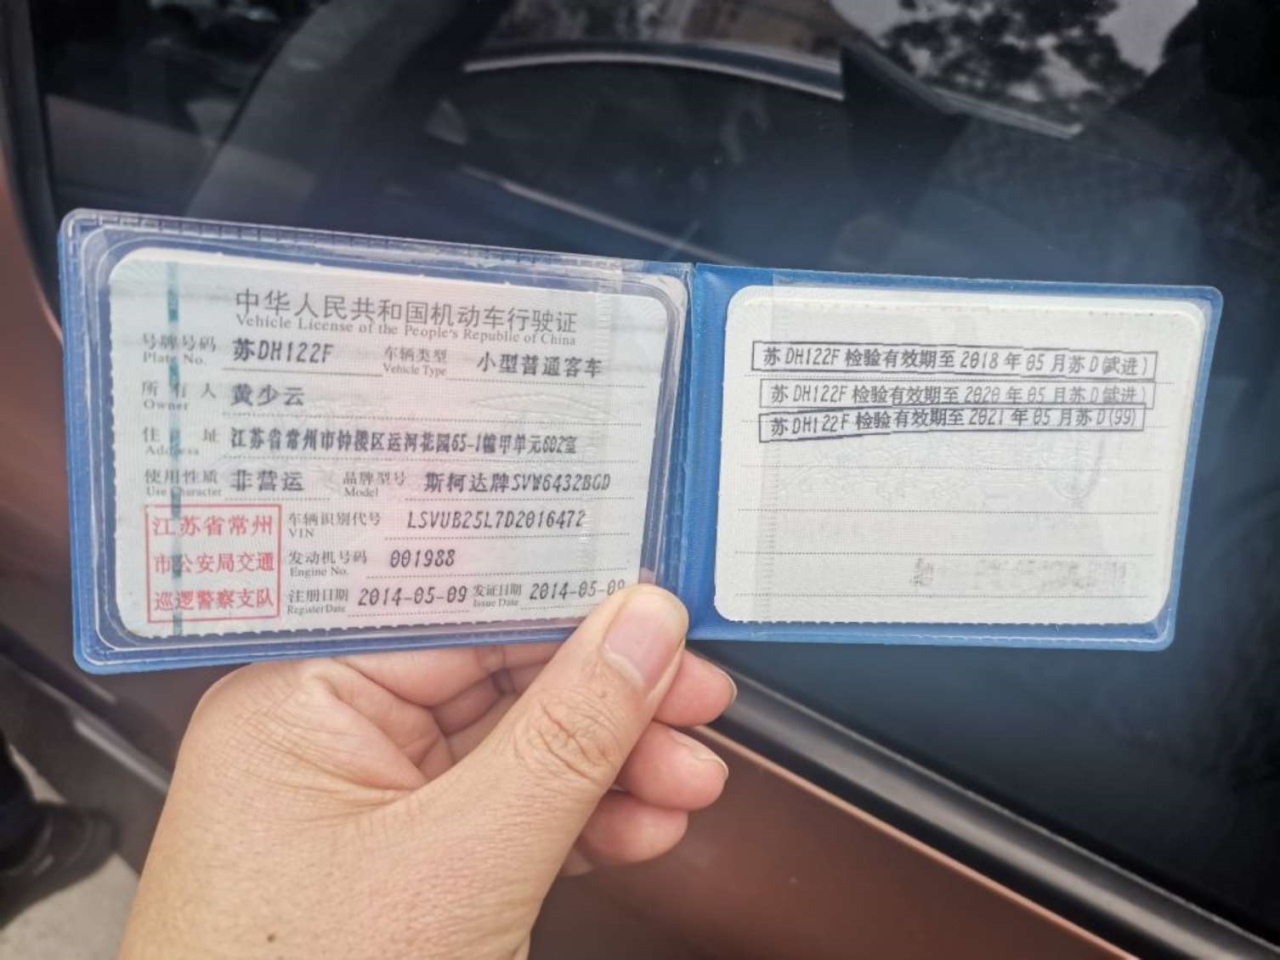 中华人民共和国机动车行驶证
Vehicle License of the People's Republic of China
号牌号码 苏DH122F 车辆类型 小型普通客车
Plate No. Vehicle Type
所有人 黄少云
Owner
住址 江苏省常州市钟楼区运河花园65-1幢甲单元602室
Address
使用性质 非营运 品牌型号 斯柯达牌SVW6432BGD
Use Character Model
江苏省常州
市公安局交通
巡逻警察支队
车辆识别代号 LSVUB25L7D2016472
VIN
发动机号码 001988
Engine No.
注册日期 2014-05-09 发证日期 2014-05-09
Register Date Issue Date
苏DH122F 检验有效期至2018年05月苏D(武进)
苏DH122F 检验有效期至2020年05月苏D(武进)
苏DH122F 检验有效期至2021年05月苏D(99)